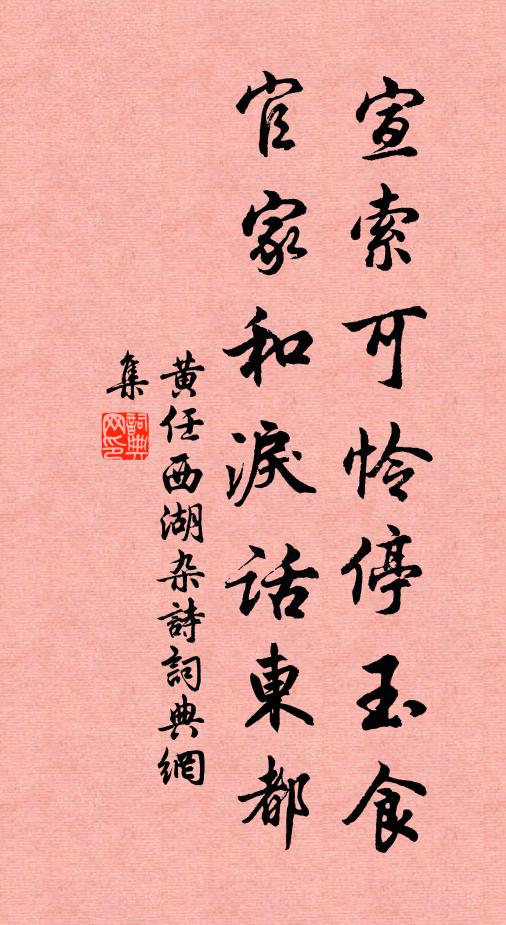 宣索可怜停玉食
官家和淚話東都
黄任西湖杂詩詞典網
集
詞典
网印